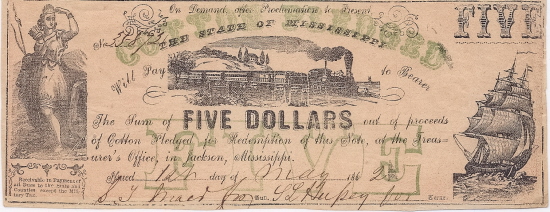 On Demand, after Proclamation to Present,
COTTON PLEDGED
FIVE
THE STATE OF MISSISSIPPI
No.
Will Pay to Bearer
The Sum of FIVE DOLLARS out of proceeds
of Cotton Pledged for Redemption of this Note, at the Treas-
urer's Office, in Jackson, Mississippi.
FIVE
Issued 1st day of May 1862
Receivable in Payment of
all Dues to the State and
Counties except the Mili-
tary Tax.
Aud.
for Treas.